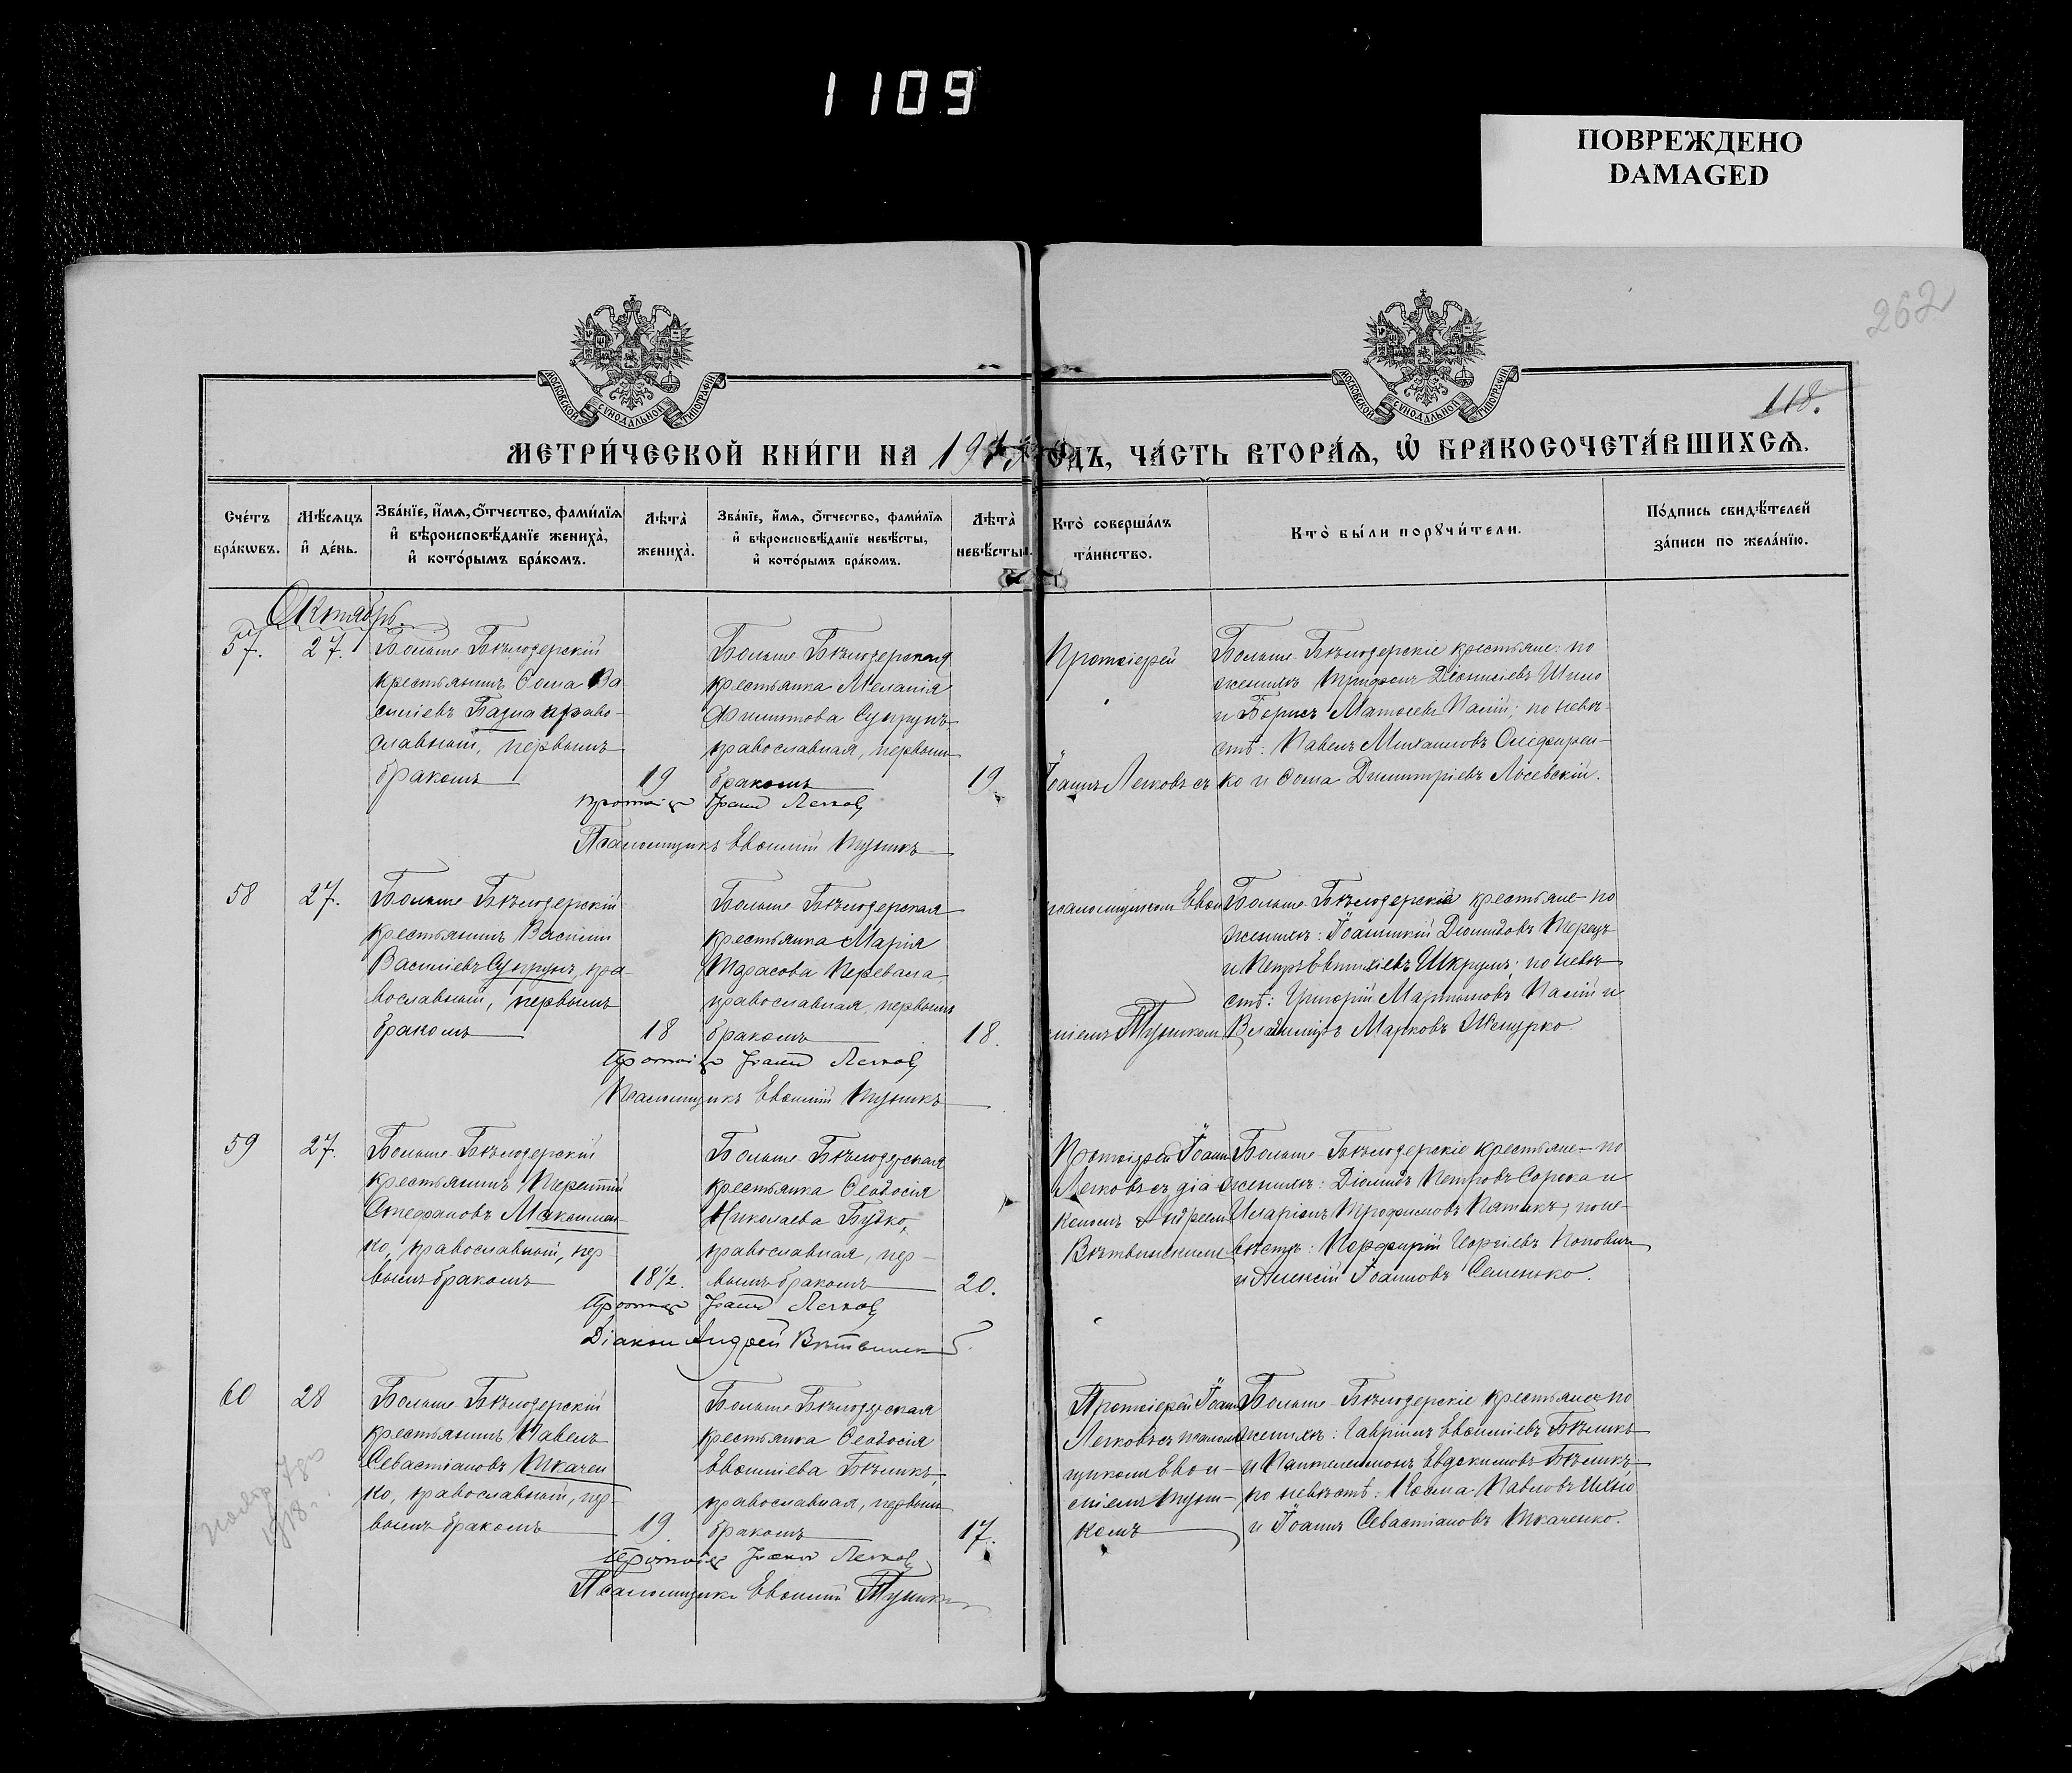 1109
ПОВРЕЖДЕНО
DAMAGED
262
МОСКОВСКОЙ СѴНОДАЛЬНОЙ ТИПОГРАФІИ
МОСКОВСКОЙ СѴНОДАЛЬНОЙ ТИПОГРАФІИ
118.
МЕТРИ́ЧЕСКОЙ КНИ́ГИ НА 191 ОДЪ, ЧА́СТЬ ВТОРА́Ѧ, Ѡ БРАКОСОЧЕТА́ВШИХСѦ.
Сче́тъ бра́кѡвъ.
Мѣ́сѧцъ и҆ де́нь.
Зва́нїе, и҆́мѧ, ѻ҆́тчество, фами́лїѧ и҆ вѣроисповѣ́данїе жениха̀, и҆ кото́рымъ бра́комъ.
Лѣта̀ жениха̀.
Зва́нїе, и҆́мѧ, ѻ҆́тчество, фами́лїѧ и҆ вѣроисповѣ́данїе невѣ́сты, и҆ кото́рымъ бра́комъ.
Лѣта̀ невѣ́сты.
Кто̀ соверша́лъ та́инство.
Кто̀ бы́ли порꙋчи́тели.
По́дпись свидѣ́телей за́писи по жела́нїю.
Октябрь.
57.
27.
Больше Бѣлозерскій
крестьянинъ Ѳома Ва
силіевъ Базма право-
славный, первымъ
бракомъ
19
Больше Бѣлозерская
крестьянка Меланія
Филиппова Супрунъ,
православная, первымъ
бракомъ
19.
Протоіерей
Іоаннъ Легковъ съ
Больше Бѣлозерскіе крестьяне: по
женихѣ Трифонъ Діонисіевъ Шило
и Борисъ Матѳіевъ Пасій; по невѣ-
стѣ: Павелъ Михаиловъ Олефирен-
ко и Ѳома Димитріевъ Лосевскій.
Протоіер Іоанн Легков
Псаломщикъ Евѳимій Тупикъ
58
27.
Больше Бѣлозерскій
крестьянинъ Василій
Василіевъ Супрунъ, пра-
вославный, первымъ
бракомъ
18
Больше Бѣлозерская
крестьянка Марія
Тарасова Перевала,
православная, первымъ
бракомъ
18.
псаломщикомъ Евѳи
міемъ Тупикомъ
Больше Бѣлозерскіе крестьяне - по
женихѣ: Іоанникій Діомидовъ Перецъ
и Петръ Евтихіевъ Шкрумъ; по невѣ
стѣ: Григорій Мартиновъ Пасій и
Владиміръ Марковъ Шепурко
Протоіер Іоанн Легков
Псаломщикъ Евѳимій Тупикъ
59
27.
Больше Бѣлозерскій
крестьянинъ Терентій
Стефановъ Максимен
ко, православный, пер
вымъ бракомъ
18½.
Больше Бѣлозерская
крестьянка Ѳеодосія
Николаева Будко,
православная, пер-
вымъ бракомъ
20.
Протоіерей Іоаннъ
Легковъ съ діа
кономъ Андреемъ
Вѣтвинскимъ
Больше Бѣлозерскіе крестьяне - по
женихѣ: Діомидъ Петровъ Сорока и
Иларіонъ Трофимовъ Пятакъ, по не-
вѣстѣ: Порфирій Георгіевъ Поповичъ
и Алексій Іоанновъ Семенько.
Протоіер Іоанн Легков
Діакон Андрей Вѣтвинскій
60
28
Больше Бѣлозерскій
крестьянинъ Павелъ
Севастіановъ Ткачен
ко, православный, пер-
вымъ бракомъ
19
Больше Бѣлозерская
крестьянка Ѳеодосія
Евѳиміева Бѣликъ,
православная, первымъ
бракомъ
17.
Протоіерей Іоаннъ
Легковъ съ псалом
щикомъ Евѳи-
міемъ Тупи-
комъ
Больше Бѣлозерскіе крестьяне по
женихѣ: Гавріилъ Евѳиміевъ Бѣликъ
и Пантелеимонъ Евдокимовъ Бѣликъ
по невѣстѣ: Косма Павловъ Шило
и Іоаннъ Севастіановъ Ткаченко.
Протоіер Іоанн Легков
Псаломщикъ Евѳимій Тупикъ
1918 г.